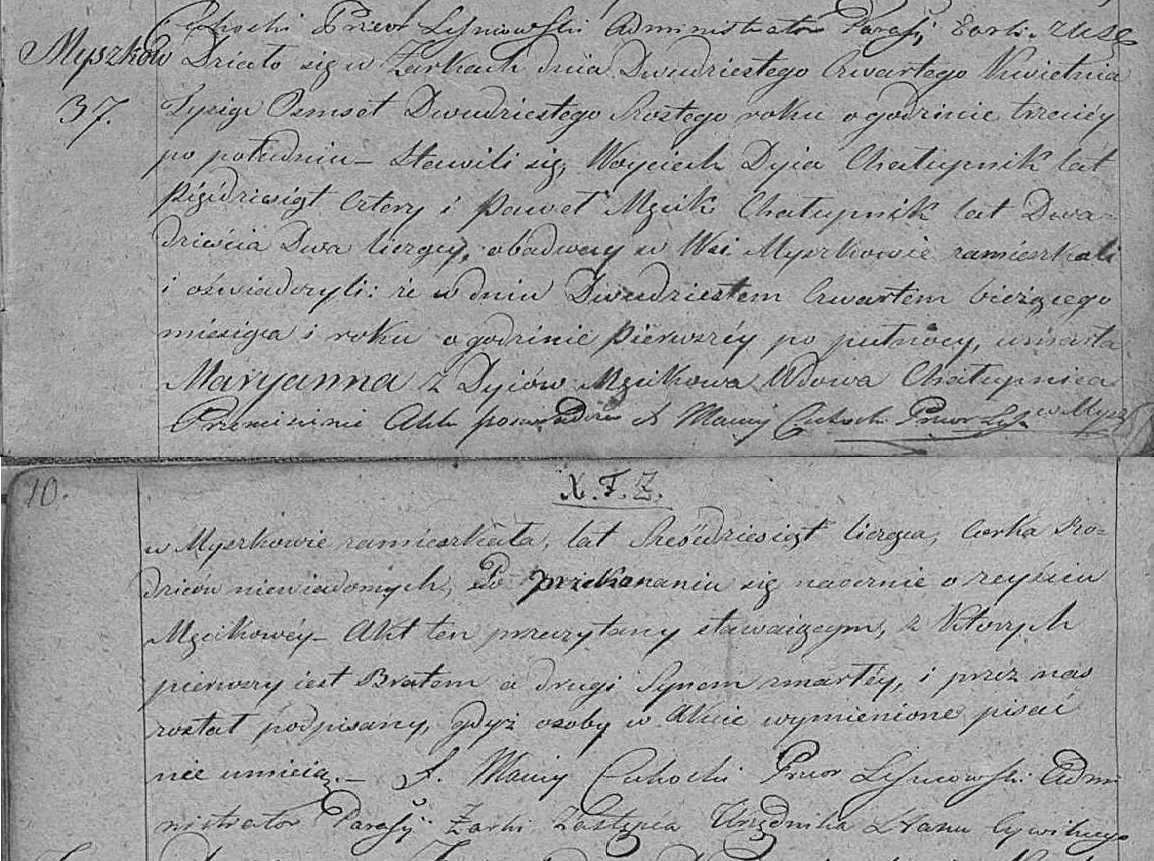 Cukocki Prior Leśniowski Administrator Parafij Żarki. zUSC
Myszków Działo się w Żarkach dnia Dwudziestego Czwartego Kwietnia
37. Tysiąc Osmset Dwudziestego Szostego roku o godzinie trzeciéy
po południu – Stawili się, Woyciech Dyia Chałupnik lat
Pięćdziesiąt Cztery i Paweł Mzcik Chałupnik lat Dwa=
dzieścia Dwa liczący, obadway w Wsi Myszkowie zamieszkali
i oświadczyli: że w dniu Dwudziestem Czwartem bieżącego
miesiąca i roku o godzinie Pierwszéy po pułnocy, umarła
Maryanna z Dyiów Mzcikowa Wdowa Chałupnica
Przeniesienie Aktu poswiadcza X Maciy Cukocki Prior Leś. w Mysz
10.
N. F. Z.
w Myszkowie zamieszkała, lat Sześćdziesiąt licząca, Corka Ro=
dziców niewiadomych, Po przekonaniu się naocznie o zeyściu
Mzcikowéy – Akt ten przeczytany stawaiącym, z Ktorych
pierwszy iest Bratem a drugi Synem zmartéy, i przez nas
został podpisany, gdyż osoby w Akcie wymienione pisać
nie umieią. – X. Maciy Cukocki Prior Leśniowski Admi
nistrator Parafij Żarki Zastępca Urzędnika Stanu Cywilnego